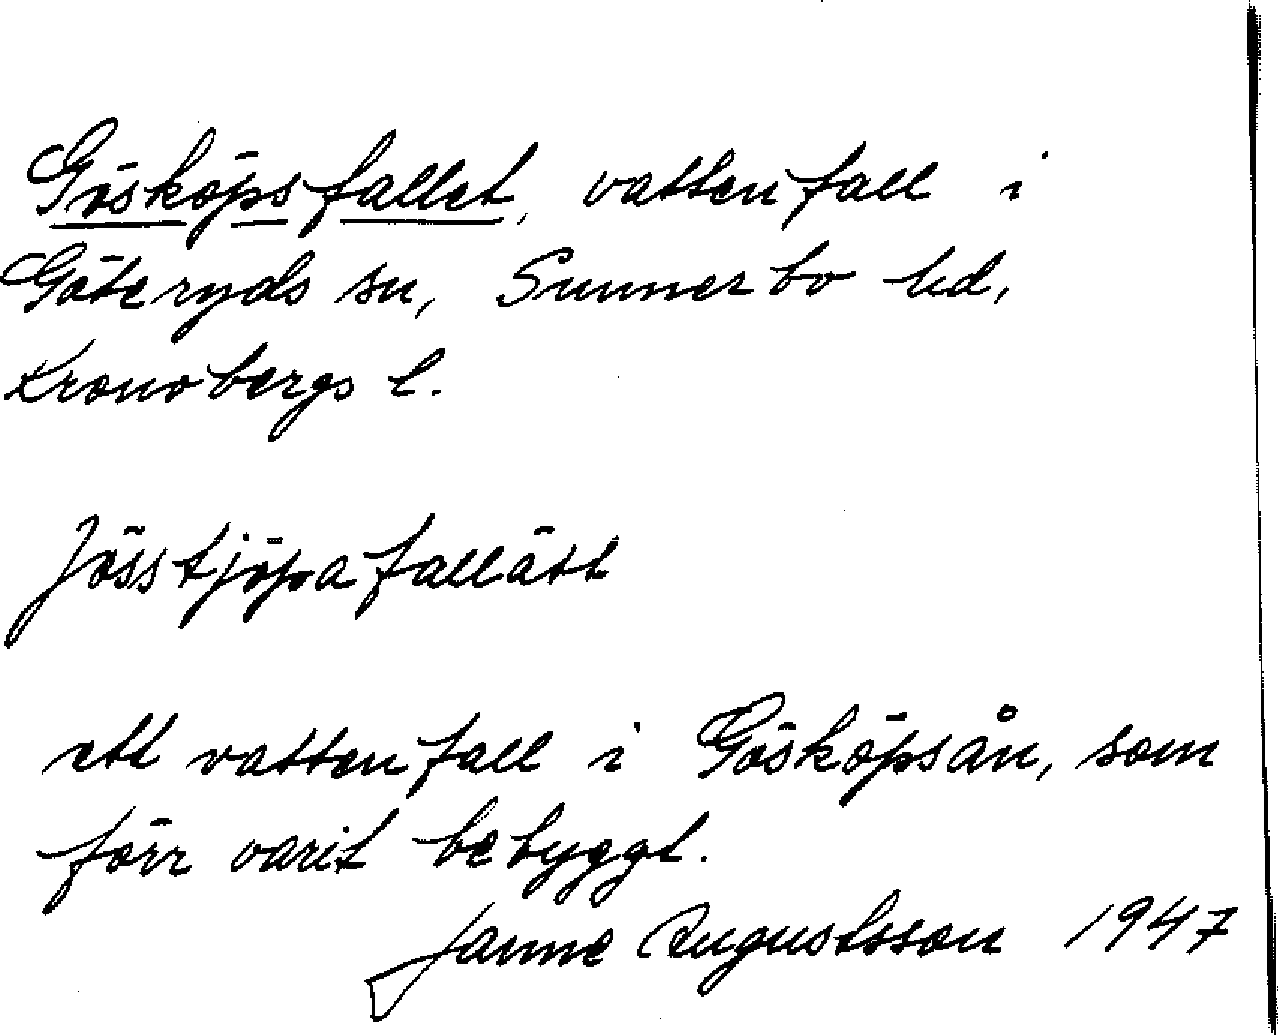 Gösköpsfallet, vattenfall i
Göteryds sn, Sunnerbo hd,
Kronobergs l.
Jösstjöpafallätt
ett vattenfall i Gösköpsån, som
förr varit bebyggt.
Janne Augustsson 1947